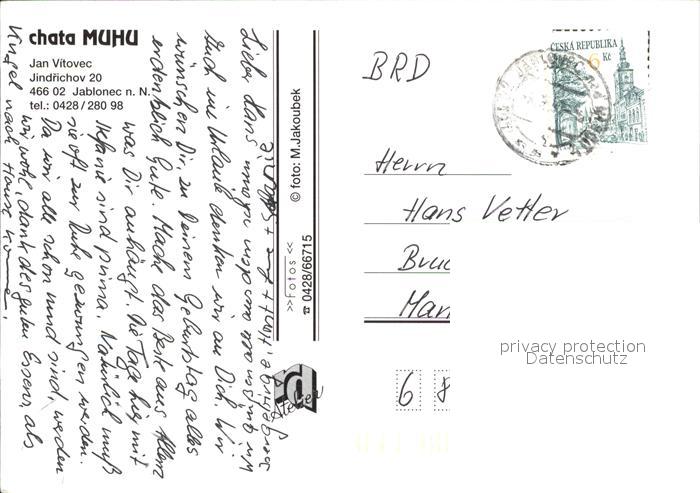 chata MUHU
Jan Vítovec
Jindřichov 20
466 02 Jablonec n. N.
tel.: 0428 / 280 98
Lieber Hans
Auch im Urlaub denken wir an Dich. Wir
wünschen Dir zu Deinem Geburtstag alles
erdenklich Gute. Mache das Beste aus Allem
was Dir anhängt. Die Tage hier mit
Stefanie sind prima. Natürlich muß
sie oft zur Ruhe gezwungen werden.
Da wir alle schon rund sind, werden
wir wohl, dank des guten Essens, als
Kugel nach Hause
© foto: M.Jakoubek
>>Fotos<<
☎ 0428/66715
Atelier
BRD
ČESKÁ REPUBLIKA
6 Kč
Herrn
Hans Vetter
Bruc
Man
6 8
privacy protection
Datenschutz